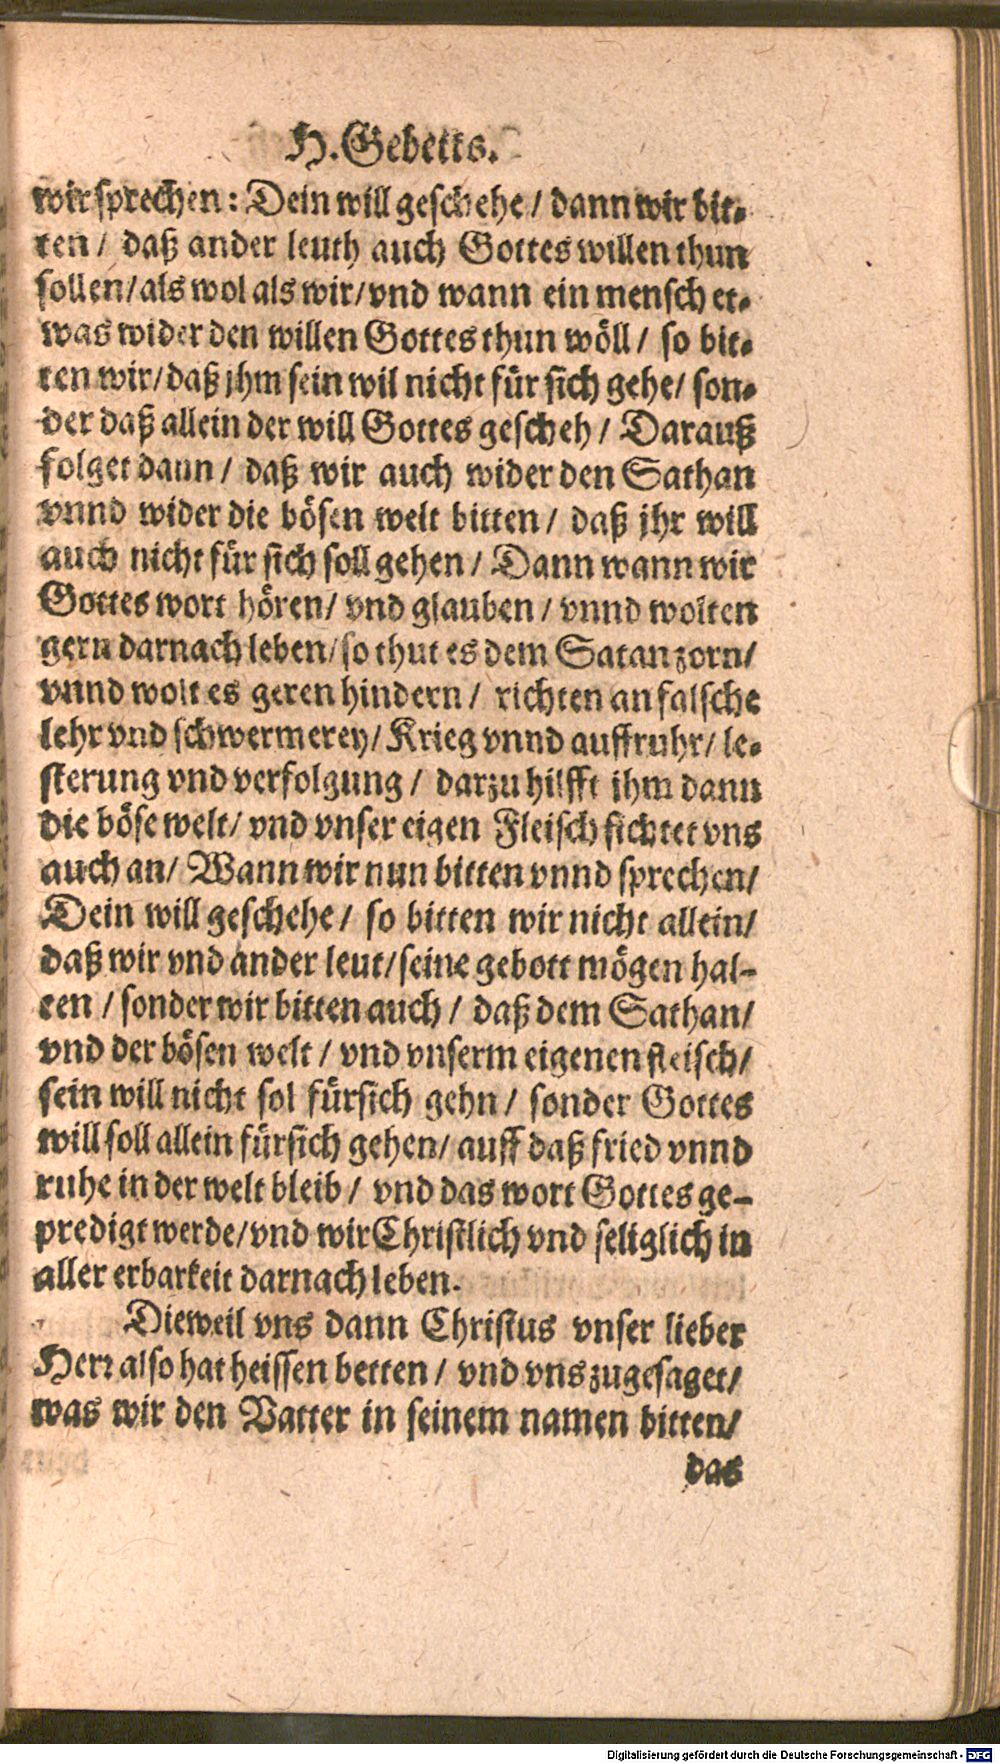 H. Gebetts.
wir sprechen: Dein will geschehe / dann wir bit-
ten / daß ander leuth auch Gottes willen thun
sollen/als wol als wir/vnd wann ein mensch et-
was wider den willen Gottes thun wöll / so bit-
ten wir/daß jhm sein wil nicht für sich gehe/ son-
der daß allein der will Gottes gescheh / Darauß
folget dann / daß wir auch wider den Sathan
vnnd wider die bösen welt bitten / daß jhr will
auch nicht für sich soll gehen / Dann wann wir
Gottes wort hören/ vnd glauben / vnnd wolten
gern darnach leben/so thut es dem Satan zorn/
vnnd wolt es geren hindern / richten an falsche
lehr vnd schwermerey/ Krieg vnnd auffruhr/ le-
sterung vnd verfolgung / darzu hilfft jhm dann
die böse welt/ vnd vnser eigen Fleisch fichtet vns
auch an/ Wann wir nun bitten vnnd sprechen/
Dein will geschehe / so bitten wir nicht allein/
daß wir vnd ander leut/seine gebott mögen hal-
ten / sonder wir bitten auch / daß dem Sathan/
vnd der bösen welt / vnd vnserm eigenen fleisch/
sein will nicht sol fürsich gehn / sonder Gottes
will soll allein fürsich gehen/ auff daß fried vnnd
ruhe in der welt bleib / vnd das wort Gottes ge-
predigt werde/vnd wir Christlich vnd seliglich in
aller erbarkeit darnach leben.
Dieweil vns dann Christus vnser lieber
Herr also hat heissen betten / vnd vns zugesaget/
was wir den Vatter in seinem namen bitten/
das
Digitalisierung gefördert durch die Deutsche Forschungsgemeinschaft - DFG